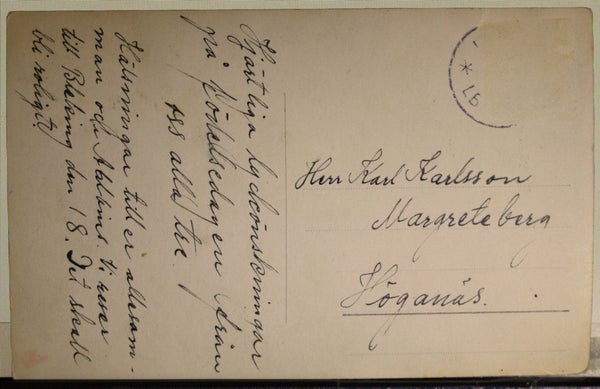 Hjärtliga lyckönskningar
på födelsedagen från
oss alla tre.
Hälsningar till er allesam-
man och Vi reser
till Bleking den 18. Det skall
bli roligt!
Herr Karl Karlsson
Margreteberg
Höganäs.